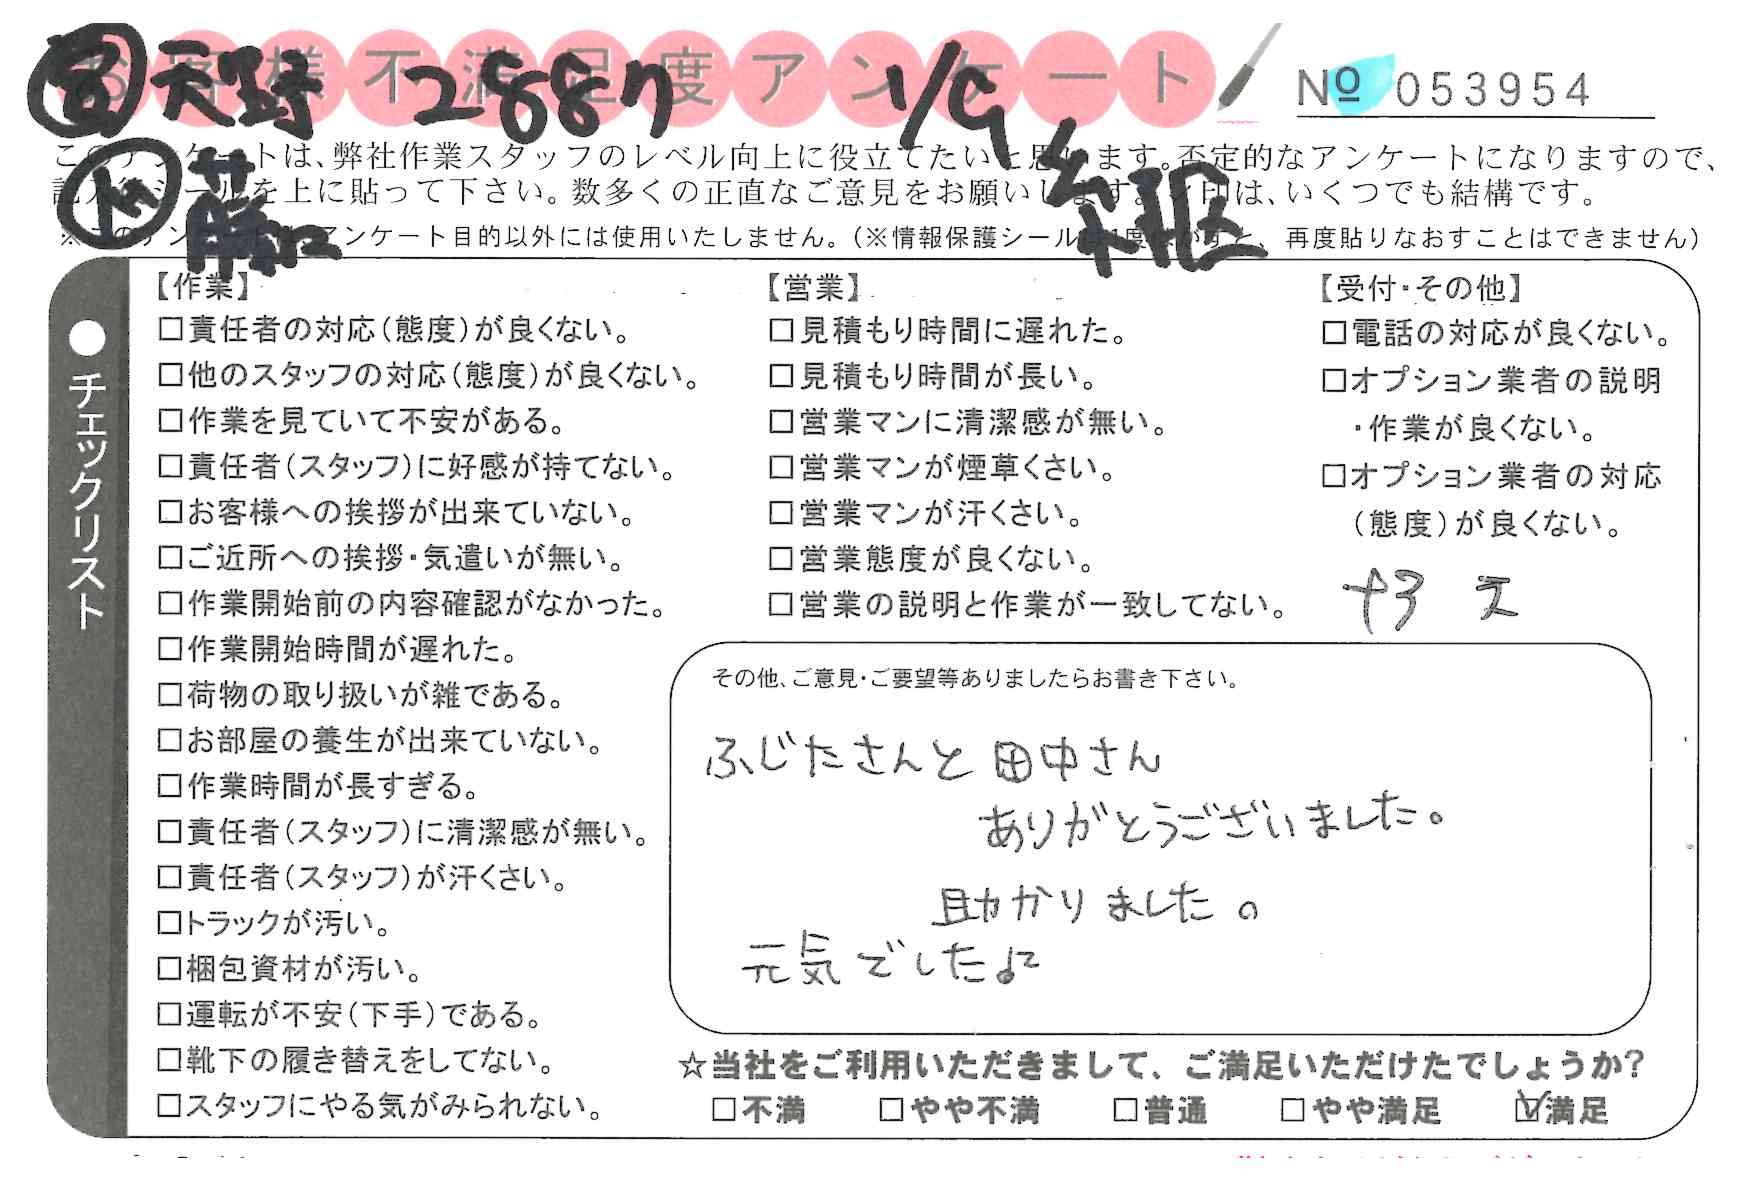 お客様不満足度アンケート
№ 053954
営 天野 2887 1/9
このアンケートは、弊社作業スタッフのレベル向上に役立てたいと思います。不定的なアンケートになりますので、
記入後シールを上に貼って下さい。数多くの正直なご意見をお願いします。レ印は、いくつでも結構です。
※このアンケートは、アンケート目的以外には使用いたしません。(※情報保護シールは1度はがすと、再度貼りなおすことはできません)
●チェックリスト
【作業】
□責任者の対応(態度)が良くない。
□他のスタッフの対応(態度)が良くない。
□作業を見ていて不安がある。
□責任者(スタッフ)に好感が持てない。
□お客様への挨拶が出来ていない。
□ご近所への挨拶・気遣いが無い。
□作業開始前の内容確認がなかった。
□作業開始時間が遅れた。
□荷物の取り扱いが雑である。
□お部屋の養生が出来ていない。
□作業時間が長すぎる。
□責任者(スタッフ)に清潔感が無い。
□責任者(スタッフ)が汗くさい。
□トラックが汚い。
□梱包資材が汚い。
□運転が不安(下手)である。
□靴下の履き替えをしてない。
□スタッフにやる気がみられない。
【営業】
□見積もり時間に遅れた。
□見積もり時間が長い。
□営業マンに清潔感が無い。
□営業マンが煙草くさい。
□営業マンが汗くさい。
□営業態度が良くない。
□営業の説明と作業が一致してない。
【受付・その他】
□電話の対応が良くない。
□オプション業者の説明
・作業が良くない。
□オプション業者の対応
(態度)が良くない。
その他、ご意見・ご要望等ありましたらお書き下さい。
ふじたさんと田中さん
ありがとうございました。
助かりました。
元気でした♪
☆当社をご利用いただきまして、ご満足いただけたでしょうか?
□不満 □やや不満 □普通 □やや満足 ☑満足